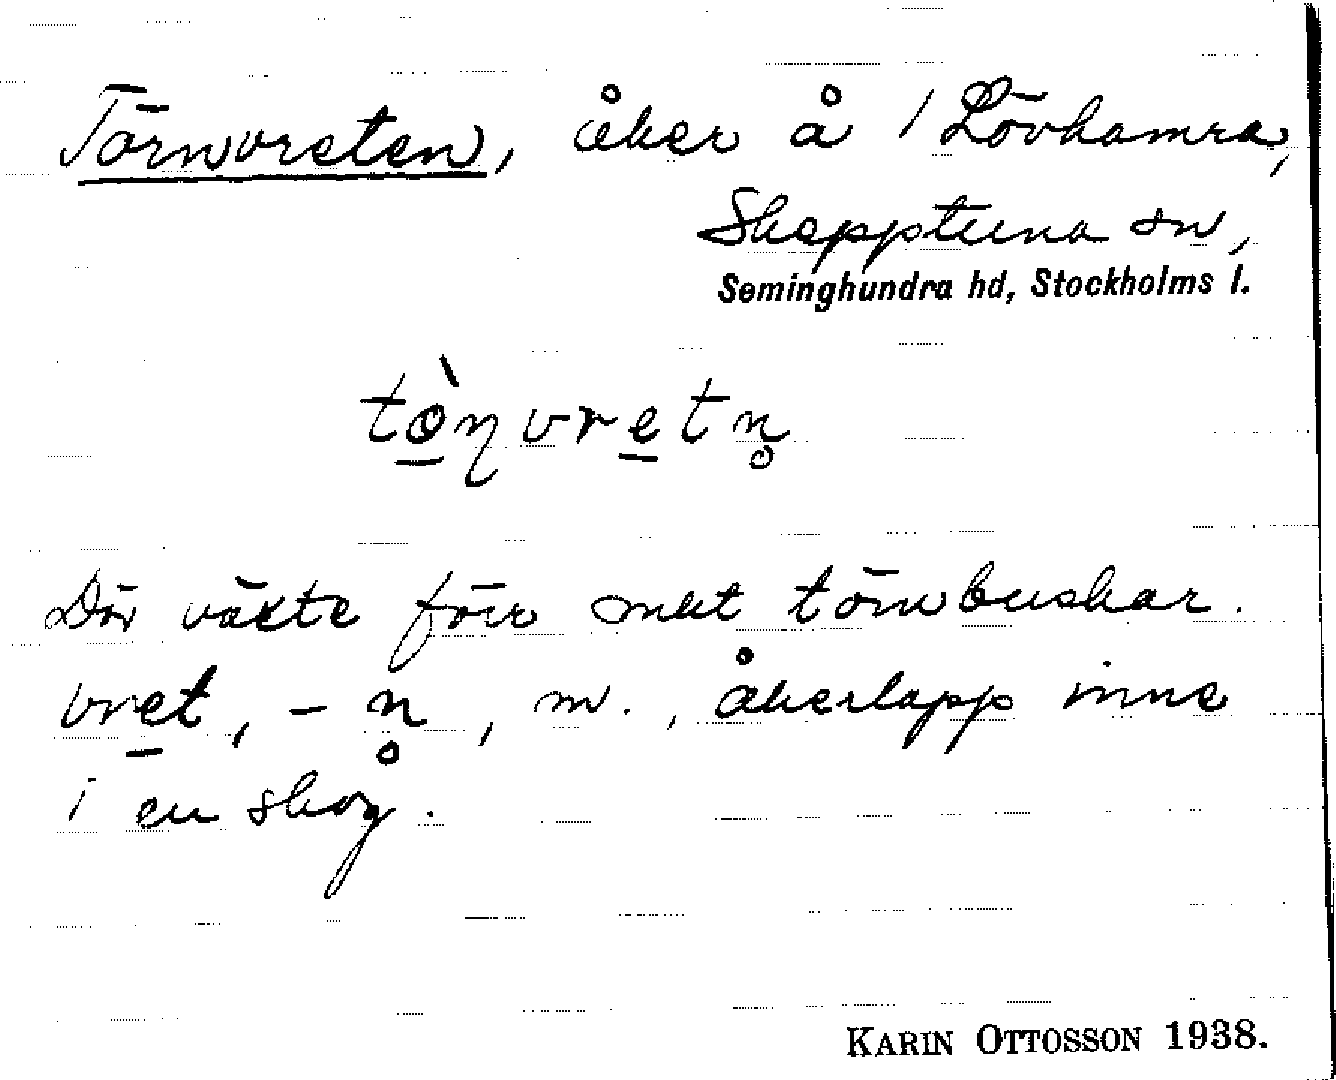 Törnvreten, åker å 1 Lövhamra,
Skepptuna sn,
Seminghundra hd, Stockholms l.
tò̱ɳvre̱tn̥
Där växte förr mut törnbuskar.
vre̱t, -n̥, m., åkerlapp inne
i en skog.
KARIN OTTOSSON 1938.